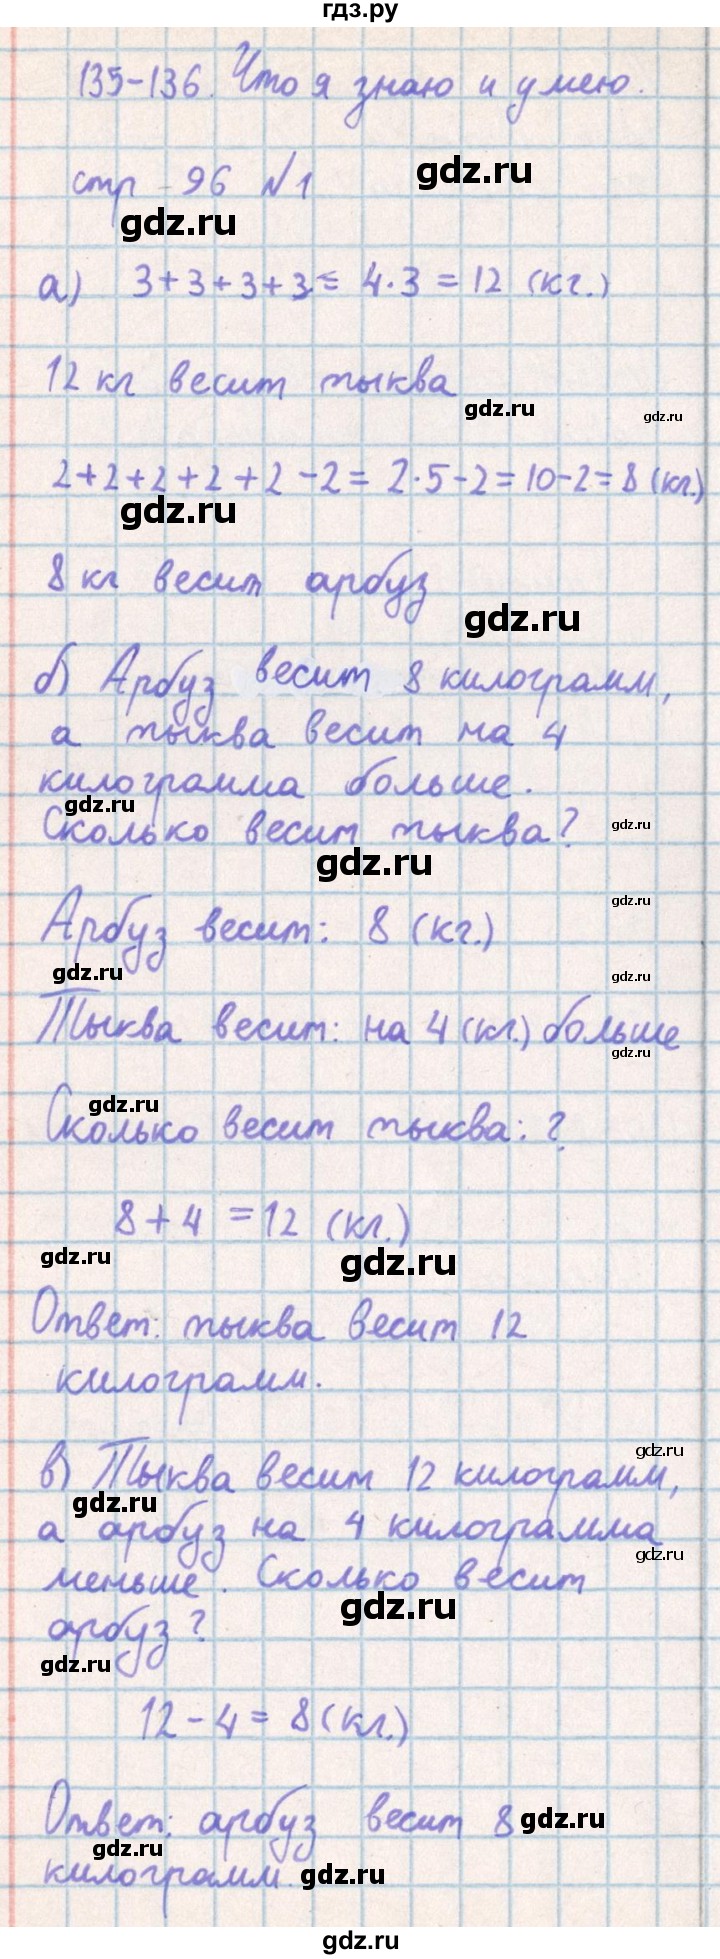 гдз.ру
135-136. Что я знаю и умею.
стр 96 №1
gdz.ru
gdz.ru
а) 3+3+3+3= 4·3 = 12 (кг.)
12 кг весит тыква
gdz.ru
gdz.ru
2+2+2+2+2-2= 2·5-2=10-2=8 (кг.)
gdz.ru
8 кг весит арбуз
gdz.ru
б) Арбуз весит 8 килограмм,
а тыква весит на 4
килограмма больше.
gdz.ru
Сколько весит тыква?
gdz.ru
gdz.ru
gdz.ru
Арбуз весит: 8 (кг.)
gdz.ru
gdz.ru
Тыква весит: на 4 (кг.) больше
gdz.ru
gdz.ru
Сколько весит тыква: ?
8+4 =12 (кг.)
gdz.ru
gdz.ru
Ответ: тыква весит 12
килограмм.
gdz.ru
в) Тыква весит 12 килограмм,
gdz.ru
а арбуз на 4 килограмма
gdz.ru
меньше. Сколько весит
gdz.ru
арбуз?
gdz.ru
12-4= 8(кг.)
Ответ: арбуз весит 8
gdz.ru
gdz.ru
килограмм.
gdz.ru
gdz.ru